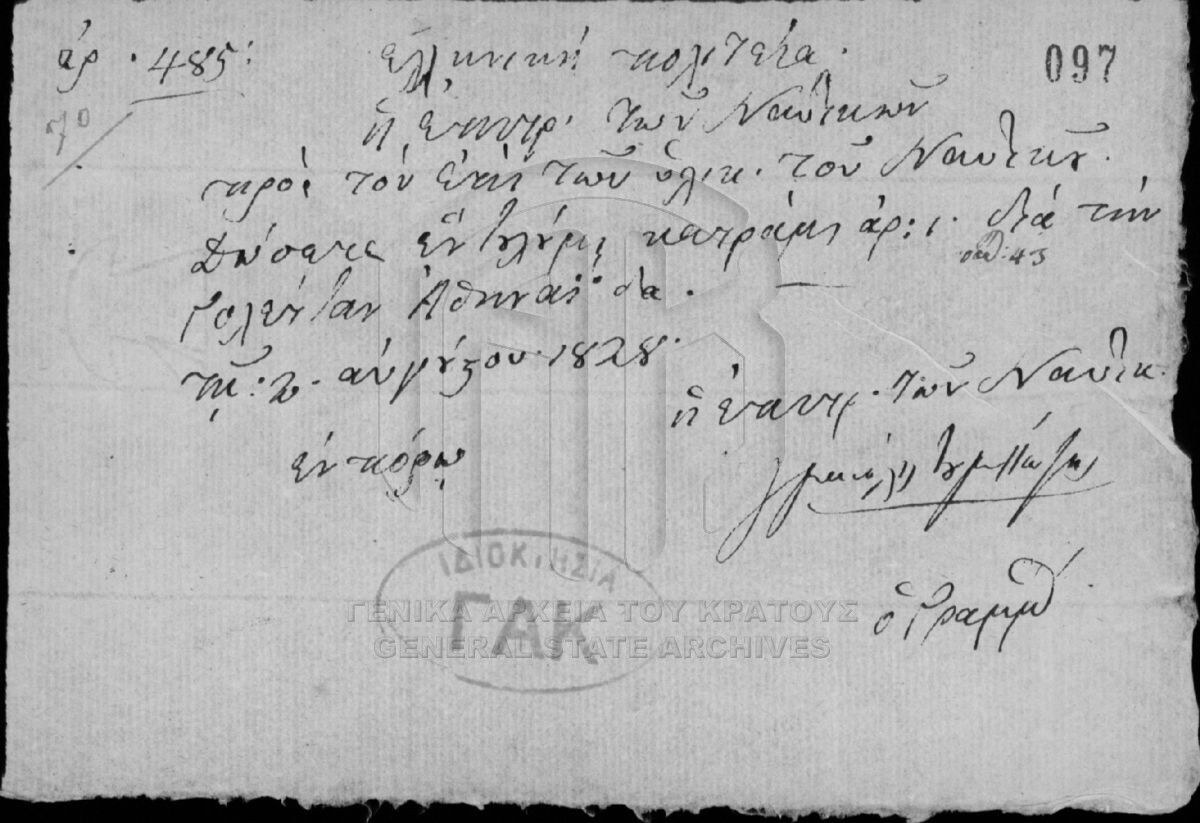 ἀρ. 485: Ἑλληνική πολιτεία. 097
70
ἡ ἐπιτρ. τῶν Ναυτικῶν
πρός τόν ἐπί τῶν ὑλικ. τοῦ Ναυτικοῦ.
Δώσατε κατράμι ἀρ: 1. διά τήν
43
γολέτταν Ἀθηναΐδα.
τῆ: 2. αὐγούστου. 1828.
ἡ ἐπιτρ. τῶν Ναυτικ.
ἐν πόρῳ
ὁ Γραμμ
ΙΔΙΟΚΤΗΣΙΑ
ΓΑΚ
ΓΕΝΙΚΑ ΑΡΧΕΙΑ ΤΟΥ ΚΡΑΤΟΥΣ
GENERAL STATE ARCHIVES